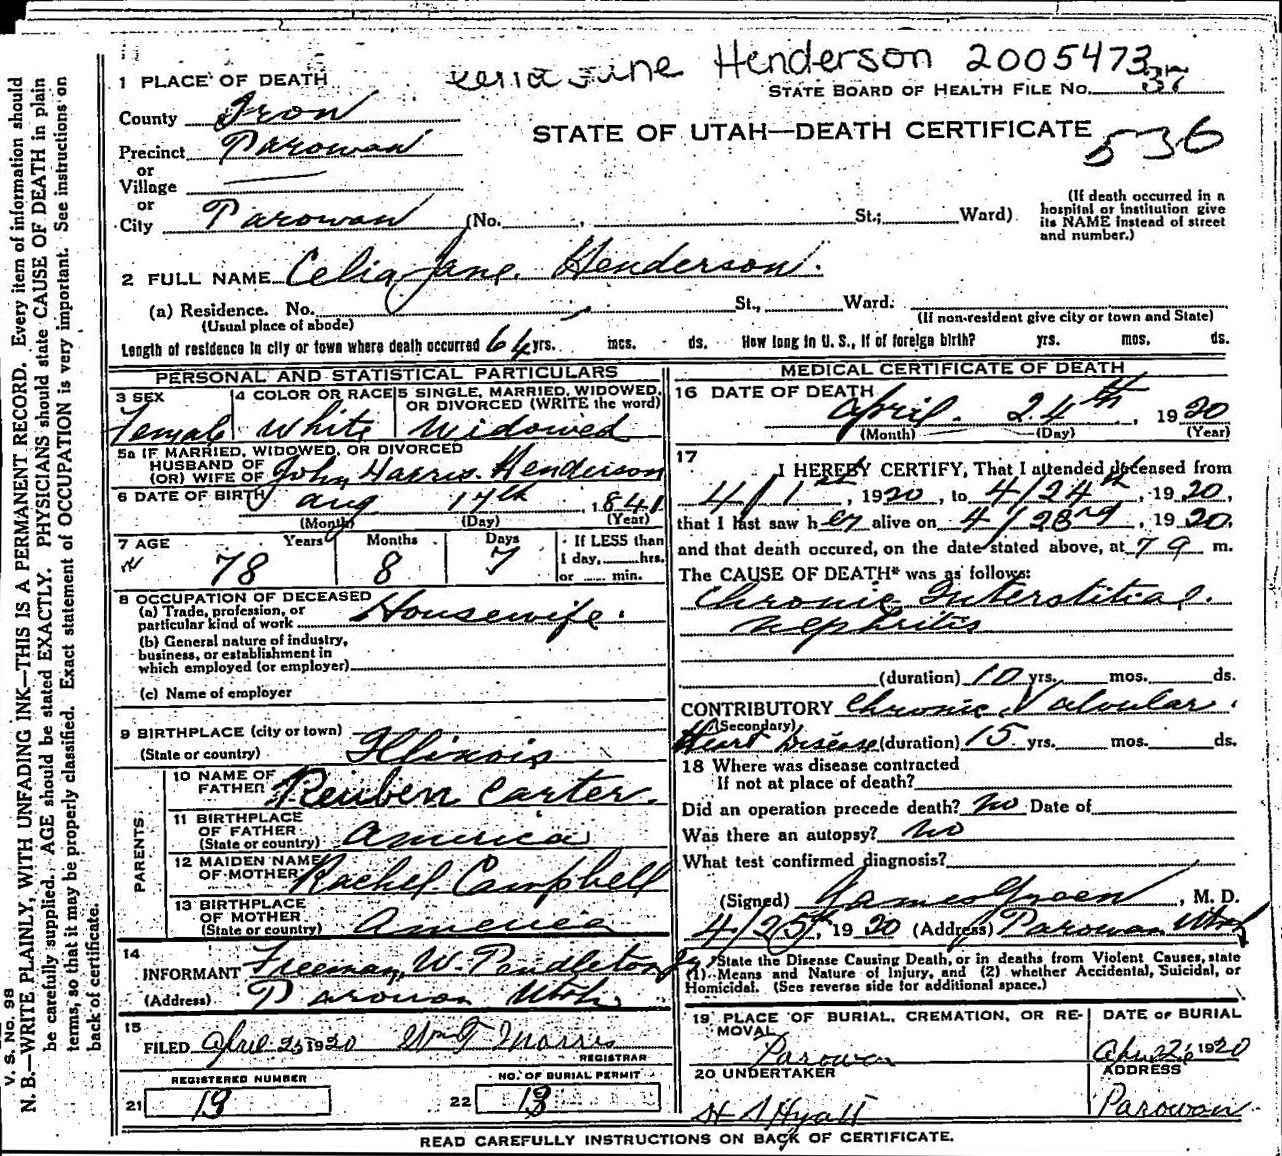 Celia Jane Henderson 2005473
1 PLACE OF DEATH
STATE BOARD OF HEALTH FILE NO. 37
County Iron
STATE OF UTAH—DEATH CERTIFICATE 536
Precinct Parowan
or
Village
or
City Parowan (No. St.; Ward)
(If death occurred in a hospital or institution give its NAME instead of street and number.)
2 FULL NAME Celia Jane Henderson.
(a) Residence. No. St., Ward.
(Usual place of abode) (If non-resident give city or town and State)
Length of residence in city or town where death occurred 64 yrs. mos. ds. How long in U. S., if of foreign birth? yrs. mos. ds.
PERSONAL AND STATISTICAL PARTICULARS
3 SEX Female
4 COLOR OR RACE White
5 SINGLE, MARRIED, WIDOWED, OR DIVORCED (WRITE the word) Widowed
5a IF MARRIED, WIDOWED, OR DIVORCED
HUSBAND OF
(OR) WIFE OF John Harris Henderson
6 DATE OF BIRTH Aug 17th, 1841
(Month) (Day) (Year)
7 AGE Years Months Days If LESS than
78 8 7 1 day, hrs.
or min.
8 OCCUPATION OF DECEASED
(a) Trade, profession, or
particular kind of work Housewife.
(b) General nature of industry,
business, or establishment in
which employed (or employer)
(c) Name of employer
9 BIRTHPLACE (city or town)
(State or country) Illinois
PARENTS.
10 NAME OF
FATHER Reuben Carter.
11 BIRTHPLACE
OF FATHER
(State or country) America
12 MAIDEN NAME
OF MOTHER Rachel Campbell
13 BIRTHPLACE
OF MOTHER
(State or country) America
14
INFORMANT Freeman W. Pendleton
(Address) Parowan Utah
15
FILED April 25 1920 Wm T Morris
REGISTRAR
REGISTERED NUMBER NO. OF BURIAL PERMIT
21 13 22 13
MEDICAL CERTIFICATE OF DEATH
16 DATE OF DEATH
April. 24th, 1920
(Month) (Day) (Year)
17
I HEREBY CERTIFY, That I attended deceased from
4/1st, 1920, to 4/24th, 1920,
that I last saw her alive on 4/23rd, 1920,
and that death occured, on the date stated above, at 7 m.
The CAUSE OF DEATH* was as follows:
Chronic Interstitial.
Nephritis
(duration) 10 yrs. mos. ds.
CONTRIBUTORY Chronic Valvular.
(Secondary)
Heart Disease (duration) 15 yrs. mos. ds.
18 Where was disease contracted
If not at place of death?
Did an operation precede death? No Date of
Was there an autopsy? No
What test confirmed diagnosis?
(Signed) James Green, M. D.
4/25th, 1920 (Address) Parowan Utah
State the Disease Causing Death, or in deaths from Violent Causes, state
(1) Means and Nature of Injury, and (2) whether Accidental, Suicidal, or
Homicidal. (See reverse side for additional space.)
19 PLACE OF BURIAL, CREMATION, OR RE-
MOVAL
Parowan
DATE OF BURIAL
April 26 1920
20 UNDERTAKER
ADDRESS
Hyatt
Parowan
READ CAREFULLY INSTRUCTIONS ON BACK OF CERTIFICATE.
V. S. No. 98
N. B.—WRITE PLAINLY, WITH UNFADING INK—THIS IS A PERMANENT RECORD. Every item of information should
be carefully supplied. AGE should be stated EXACTLY. PHYSICIANS should state CAUSE OF DEATH in plain
terms, so that it may be properly classified. Exact statement of OCCUPATION is very important. See instructions on
back of certificate.